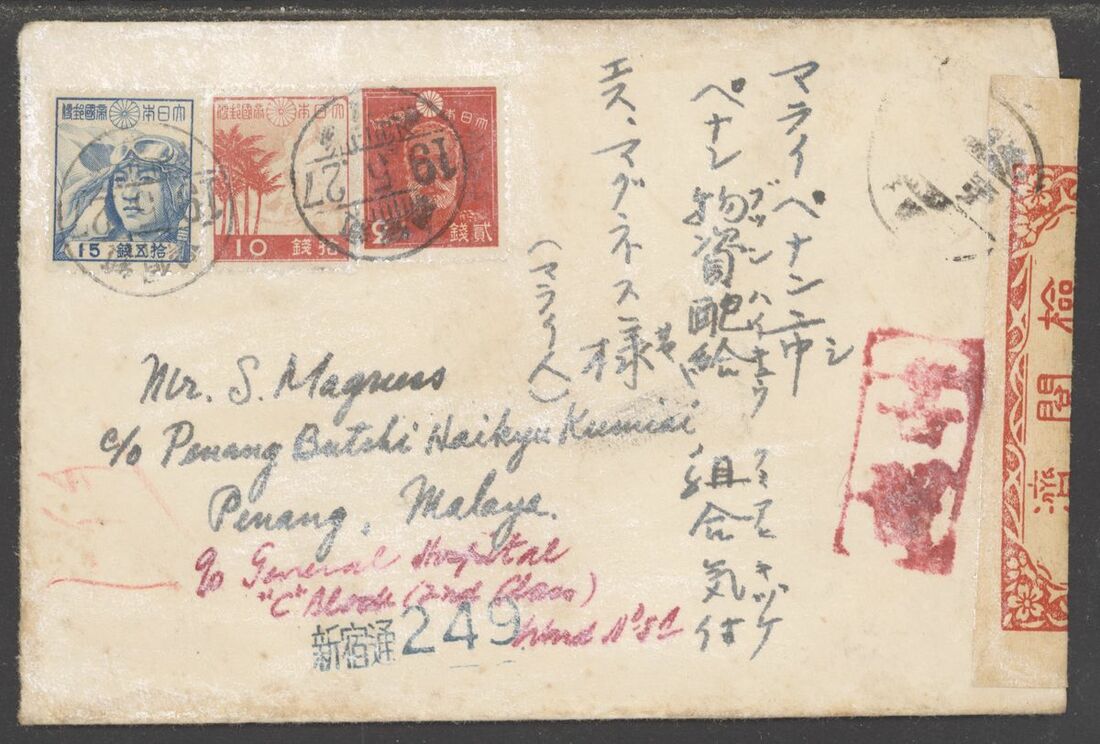 大日本帝國郵便
15 拾五錢
大日本帝國郵便
10 拾錢
大日本
貳錢
19
5
27
マライ ペナン市
シ
ペナン物資配給組合気付
ブッシ ハイキウ クミアヒ キヅケ
エス、マグネス様
(マライ人)
Mr. S. Magness
c/o Penang Butchi Haikyu Kumiai
Penang, Malaya.
c/o General Hospital
"C" Block (2nd Class)
Ward No 5C
新宿通249
檢閲濟